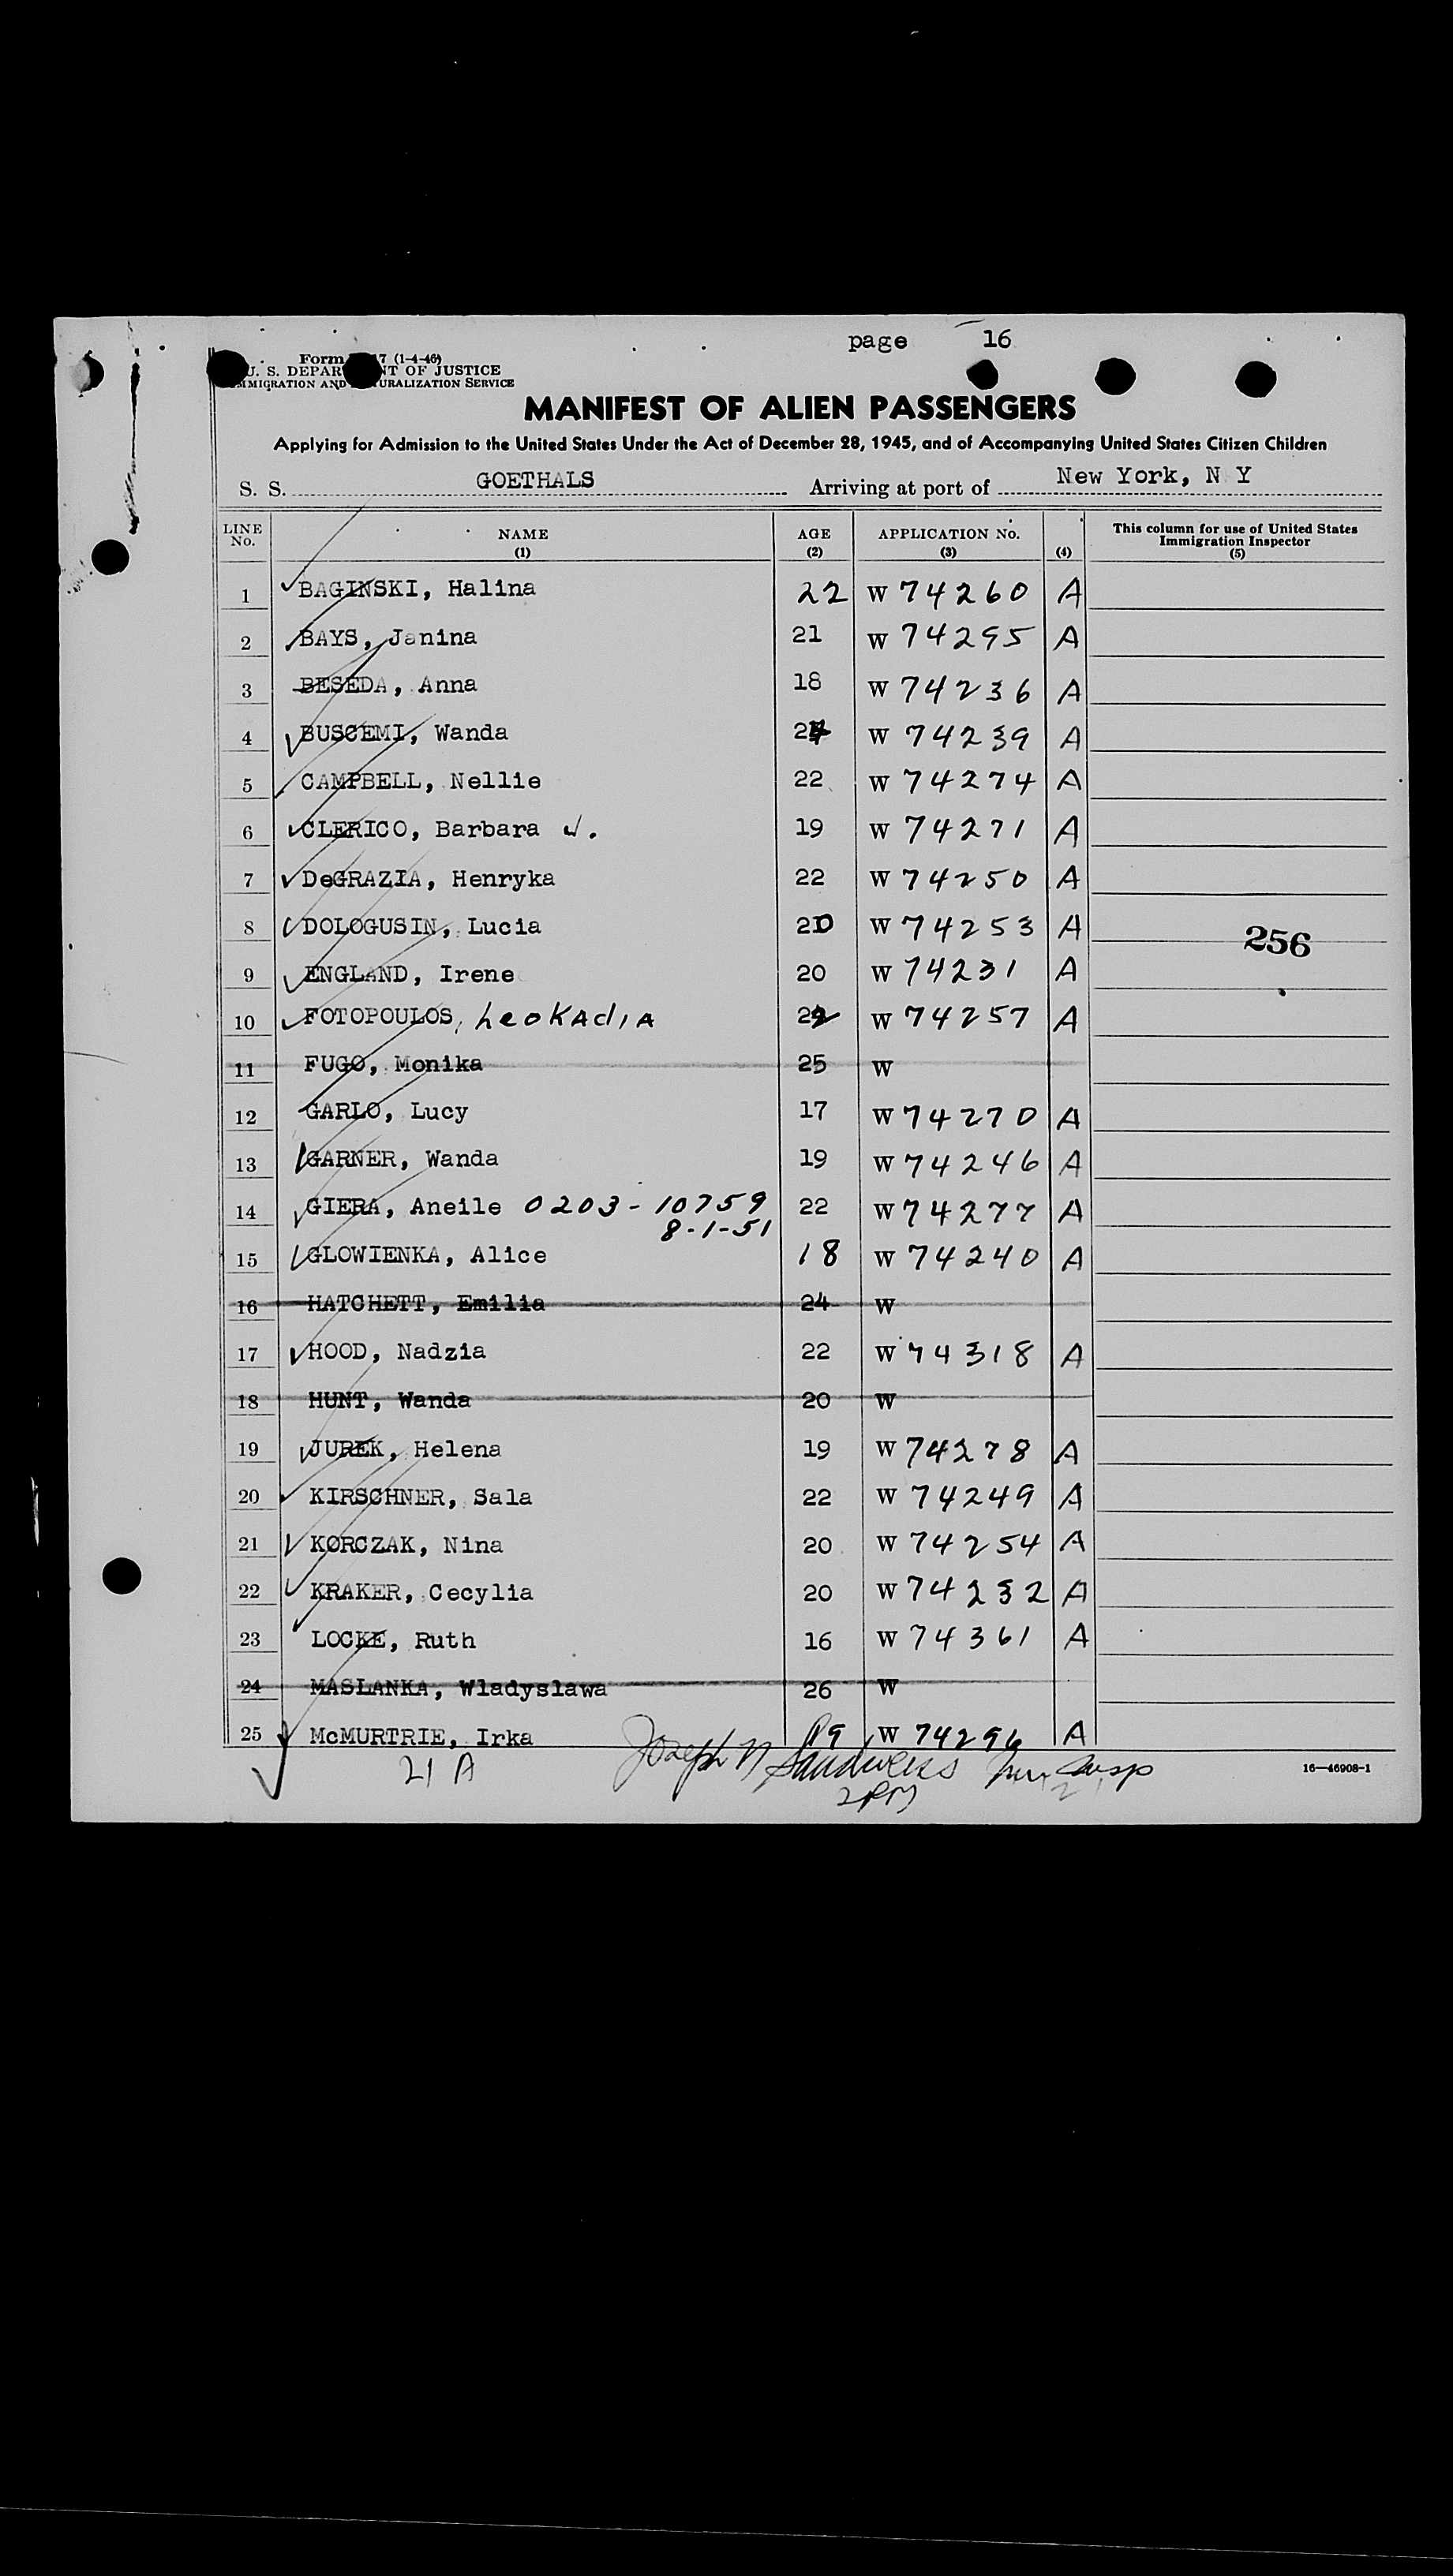 page 16
Form 7 (1-4-46)
U. S. DEPAR NT OF JUSTICE
MMIGRATION AND URALIZATION SERVICE
MANIFEST OF ALIEN PASSENGERS
Applying for Admission to the United States Under the Act of December 28, 1945, and of Accompanying United States Citizen Children
S. S. GOETHALS Arriving at port of New York, N Y
LINE No. NAME (1) AGE (2) APPLICATION No. (3) (4) This column for use of United States Immigration Inspector (5)
1 BAGINSKI, Halina 22 W 74260 A
2 BAYS, Janina 21 W 74295 A
3 BESEDA, Anna 18 W 74236 A
4 BUSCEMI, Wanda W 74239 A
5 CAMPBELL, Nellie 22 W 74274 A
6 CLERICO, Barbara J. 19 W 74271 A
7 DeGRAZIA, Henryka 22 W 74250 A
8 DOLOGUSIN, Lucia 20 W 74253 A
256
9 ENGLAND, Irene 20 W 74231 A
10 FOTOPOULOS, Leokadia 22 W 74257 A
11 FUGO, Monika 25 W
12 GARLO, Lucy 17 W 74270 A
13 GARNER, Wanda 19 W 74246 A
14 GIERA, Aneile 0203-10759 22 W 74277 A
8-1-51
15 GLOWIENKA, Alice 18 W 74240 A
16 HATCHETT, Emilia 24 W
17 HOOD, Nadzia 22 W 74318 A
18 HUNT, Wanda 20 W
19 JUREK, Helena 19 W 74278 A
20 KIRSCHNER, Sala 22 W 74249 A
21 KORCZAK, Nina 20 W 74254 A
22 KRAKER, Cecylia 20 W 74232 A
23 LOCKE, Ruth 16 W 74361 A
24 MASLANKA, Wladyslawa 26 W
25 McMURTRIE, Irka 19 W 74296 A
21 A Joseph N Sandweiss Insp 16—46908-1
2PM